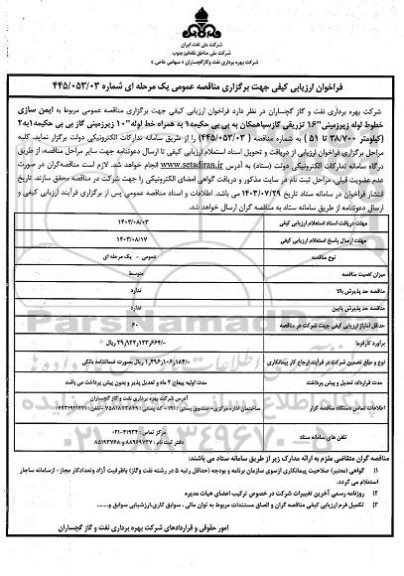 شرکت ملی نفت ایران
شرکت ملی مناطق نفتخیز جنوب
شرکت بهره برداری نفت و گاز گچساران « سهامی خاص »
فراخوان ارزیابی کیفی جهت برگزاری مناقصه عمومی یک مرحله ای شماره ۴۴۵/۰۵۳/۰۳
شرکت بهره برداری نفت و گاز گچساران در نظر دارد فراخوان ارزیابی کیفی جهت برگزاری مناقصه عمومی مربوط به ایمن سازی
خطوط لوله زیرزمینی "۱۶ تزریقی گازسیاهمکان به بی بی حکیمه۱ به همراه خط لوله"۱۰ زیرزمینی گاز بی بی حکیمه۱به۲
(کیلومتر ۳۸/۷۰۰ تا ۵۱ ) به شماره مناقصه ( ۴۴۵/۰۵۳/۰۳) را از طریق سامانه تدارکات الکترونیکی دولت برگزار نماید. کلیه
مراحل برگزاری فراخوان ارزیابی از دریافت و تحویل اسناد استعلام ارزیابی کیفی تا ارسال دعوتنامه جهت سایر مراحل مناقصه، از طریق
درگاه سامانه تدارکات الکترونیکی دولت (ستاد) به آدرس www.setadiran.ir انجام خواهد شد. لازم است مناقصه‌گران در صورت
عدم عضویت قبلی، مراحل ثبت نام در سایت مذکور و دریافت گواهی امضای الکترونیکی را جهت شرکت در مناقصه محقق سازند. تاریخ
انتشار فراخوان در سامانه ستاد تاریخ ۱۴۰۳/۰۷/۲۹ می باشد. اطلاعات و اسناد مناقصه عمومی پس از برگزاری فرآیند ارزیابی کیفی و
ارسال دعوتنامه از طریق سامانه ستاد به مناقصه گران ارسال خواهد شد.
مهلت دریافت اسناد استعلام ارزیابی کیفی ۱۴۰۳/۰۸/۰۳
مهلت ارسال پاسخ استعلام ارزیابی کیفی ۱۴۰۳/۰۸/۱۷
نوع مناقصه عمومی - یک مرحله ای
میزان اهمیت مناقصه متوسط
مناقصه حد پذیرش بالا ندارد
مناقصه حد پذیرش پایین ندارد
حداقل امتیاز ارزیابی کیفی جهت شرکت در مناقصه ۶۰
برآورد کارفرما ۲۹,۹۲۲,۱۲۳,۶۶۹/۰ ریال
نوع و مبلغ تضمین شرکت در فرآیند ارجاع کار پیمانکاری ۱,۴۹۶,۱۰۶,۱۸۴/۰ ریال بصورت ضمانتنامه بانکی
مدت قرارداد، تعدیل و پیش پرداخت مدت اولیه پیمان ۲ ماه و تعدیل پذیر و بدون پیش پرداخت می باشد
اطلاعات تماس دستگاه مناقصه گزار آدرس شرکت بهره برداری نفت و گاز گچساران
ساختمان اداری مرکزی - صندوق پستی : ۱۹۱ - کد پستی :
تلفن های سامانه ستاد مرکز تماس: ۴۱۹۳۴-۰۲۱
دفتر ثبت نام : ۸۸۹۶۹۷۳۷ و ۸۵۱۹۳۷۶۸
مناقصه گران متقاضی ملزم به ارائه مدارک زیر از طریق سامانه ستاد می باشند:
۱) گواهی (معتبر) صلاحیت پیمانکاری ازسوی سازمان برنامه و بودجه (حداقل رتبه ۵ در رشته نفت وگاز) باظرفیت آزاد وتعدادکار مجاز - ازسامانه ساجار
استعلام می گردد.
۲) روزنامه رسمی آخرین تغییرات شرکت در خصوص ترکیب اعضای هیات مدیره
۳) تکمیل فرم ارزیابی کیفی مناقصه گران و الصاق مستندات مربوط به توان مالی ، سوابق کاری،ارزشیابی سوابق و.....
امور حقوقی و قراردادهای شرکت بهره برداری نفت و گاز گچساران
ParsNamadData
۰۲۱-۸۸۳۴۹۶۷۰-۵